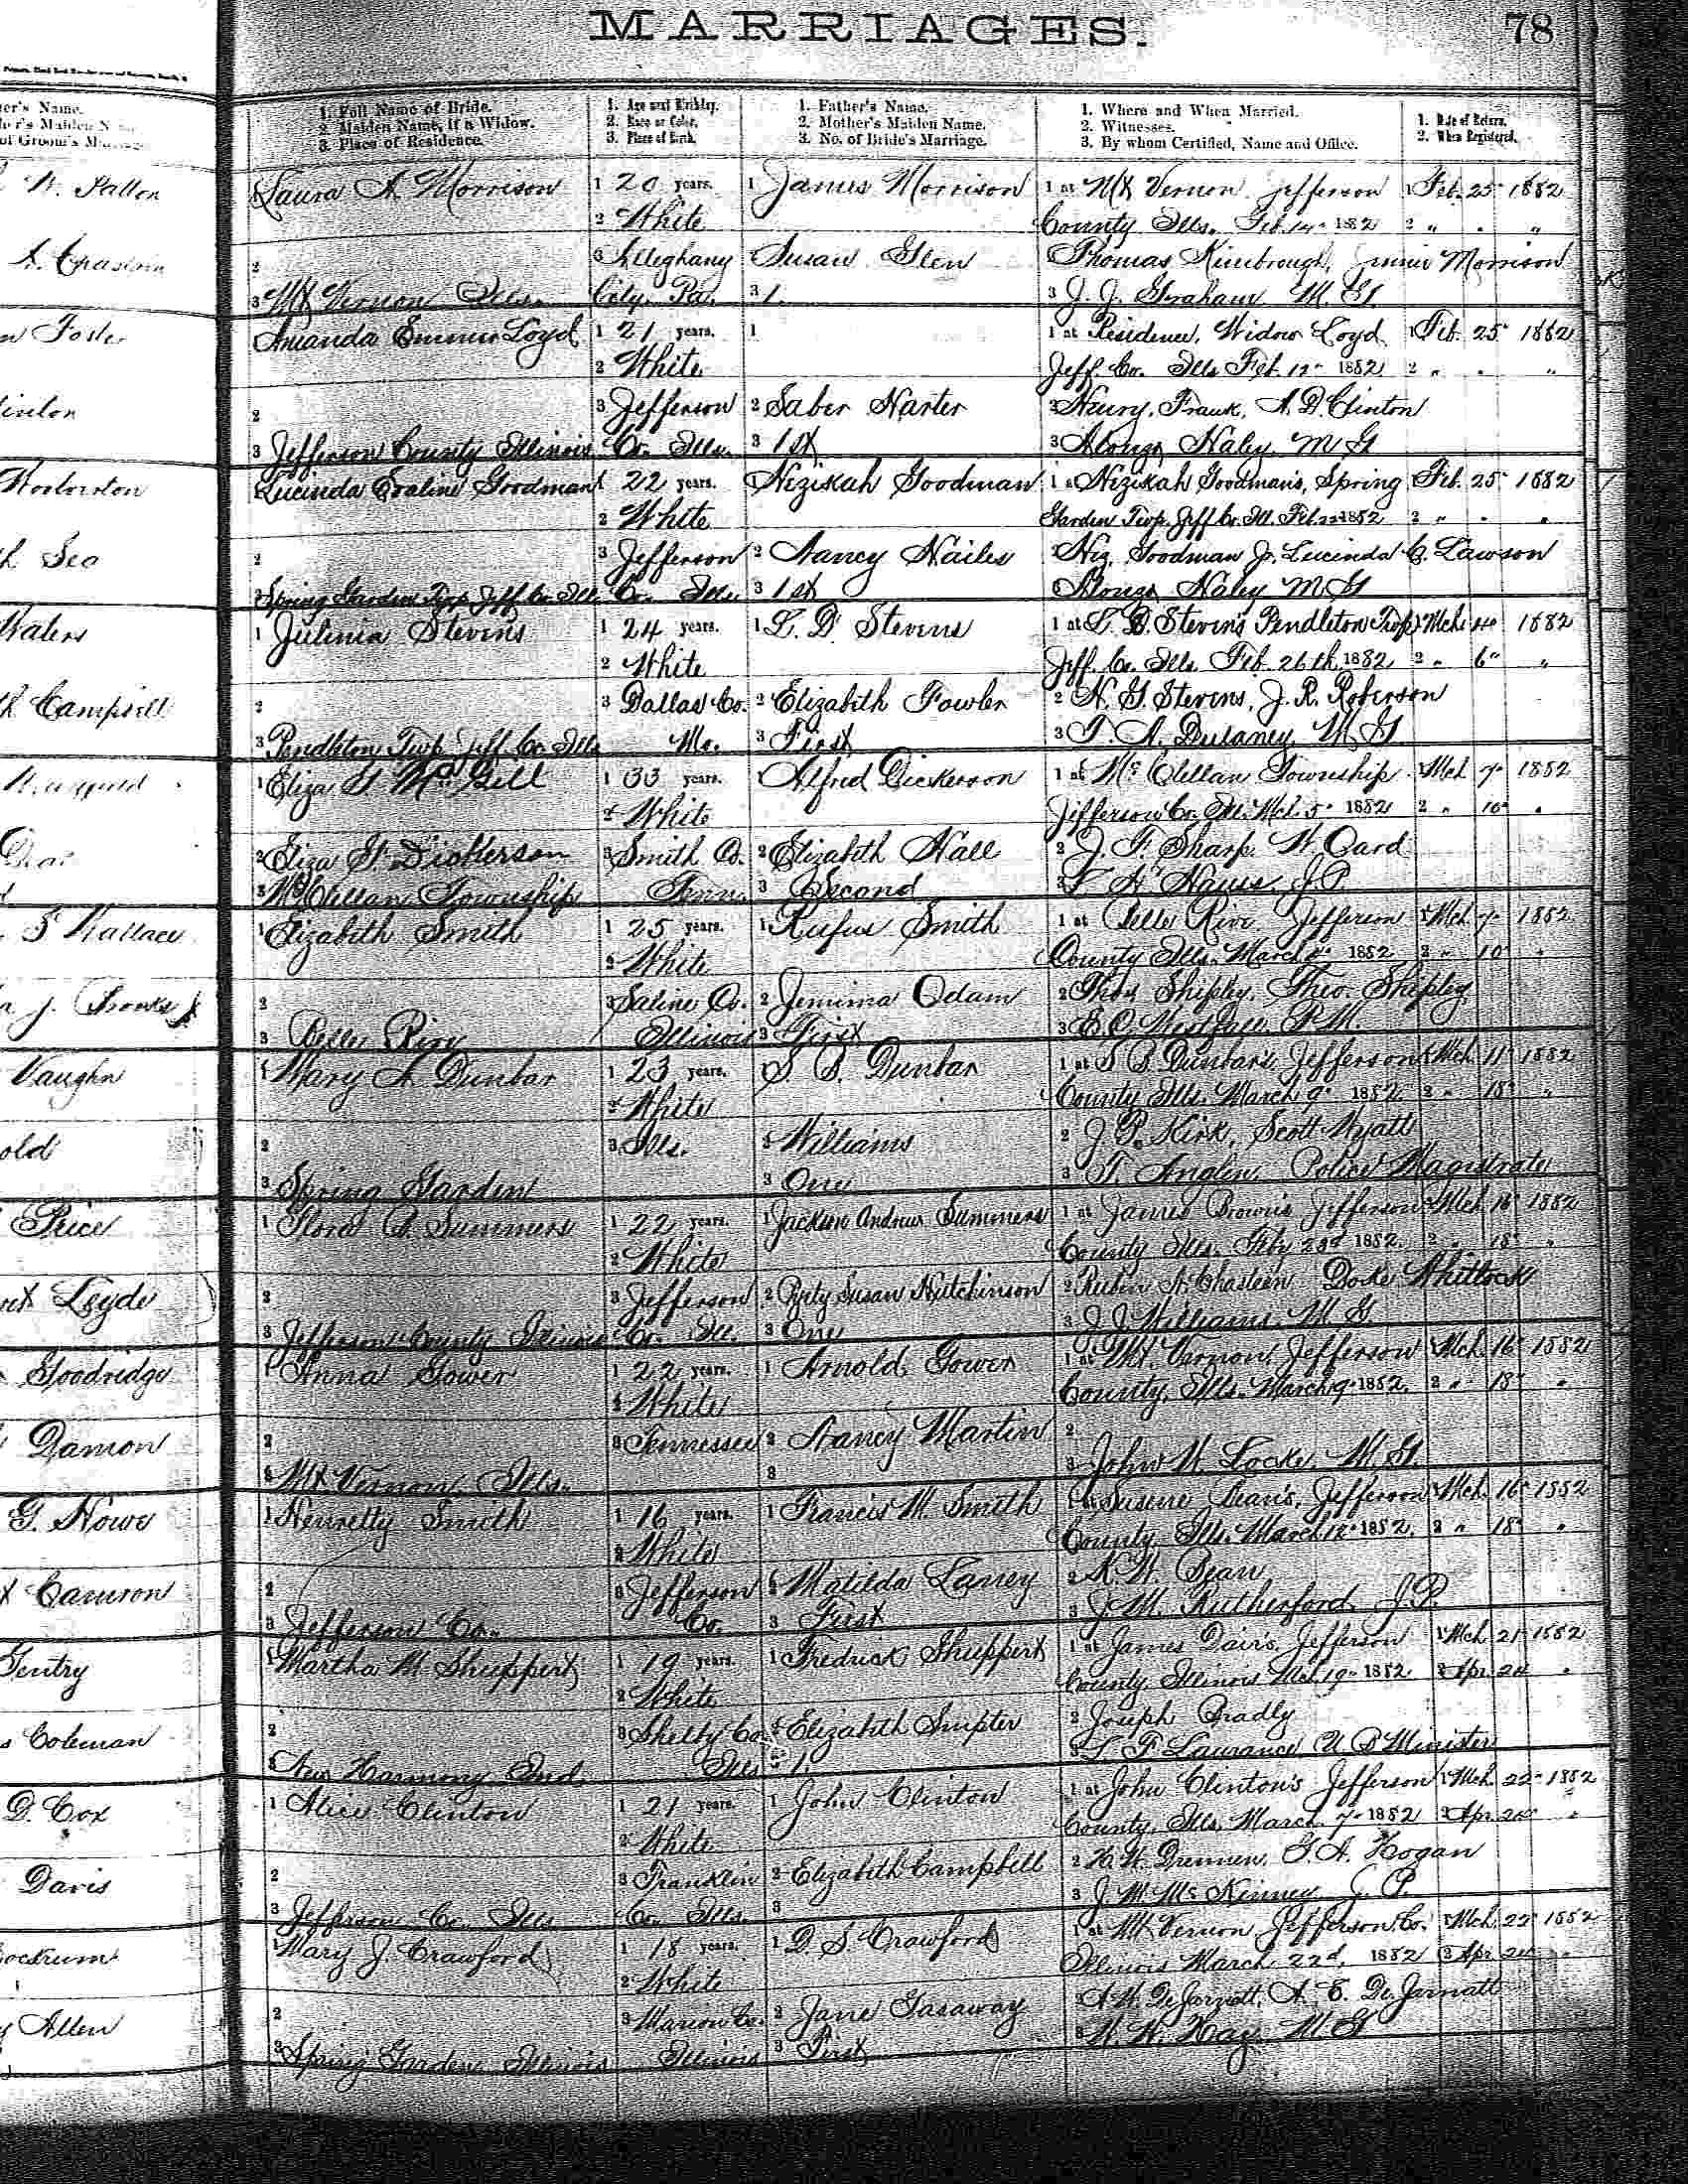 MARRIAGES.
78
1. Full Name of Bride.
2. Maiden Name, If a Widow.
3. Place of Residence.
1. Age next Birthday.
2. Race or Color.
3. Place of Birth.
1. Father's Name.
2. Mother's Maiden Name.
3. No. of Bride's Marriage.
1. Where and When Married.
2. Witnesses.
3. By whom Certified, Name and Office.
1. Date of Return.
2. When Registered.
Laura A. Morrison 1 20 years. 1 James Morrison 1 at Mt Vernon Jefferson 1 Feb. 25 1882
2 White County Ills. Feb. 14 1882 2 " " "
2 3 Alleghany Susan Glen Thomas Kimbrough, Morrison
3 Mt Vernon Ills. City Pa. 3 1. 3 J. J. Graham M. G.
Amanda Emma Loyd 1 21 years. 1 1 at Residence, Widow Loyd 1 Feb. 25 1882
2 White Jeff Co. Ills Feb. 12 1882 2 " " "
2 3 Jefferson 2 Saber Harter 2 Henry, Frank, A. D. Clinton
3 Jefferson County Illinois Co. Ills. 3 1st 3 Alonzo Haley M G
Lucinda Evaline Goodman 1 22 years. 1 Hezikah Goodman 1 at Hezikah Goodman's, Spring Feb. 25 1882
2 White Garden Twp. Jeff Co. Ill. Feb 1882 2 " " "
2 3 Jefferson 2 Nancy Hailes Hez. Goodman Jr. Lucinda C. Lawson
Spring Garden Twp Jeff Co. Ills Co. Ills. 3 1st Alonzo Haley M G
1 Julinia Stevens 1 24 years. 1 L. D. Stevens 1 at L. D. Stevens Pendleton Twp Mch. 4 1882
2 White Jeff. Co. Ills. Feb. 26th 1882 2 " 6 "
2 3 Dallas Co. 2 Elizabith Fowler 2 N. G. Stevens, J. R. Roberson
3 Pendleton Twp Jeff. Co Ills Mo. 3 First 3 T. A. Dulaney M G
1 Eliza McGill 1 33 years. 1 Alfred Dickerson 1 at Mc Clellan Township Mch 7 1882
2 White Jefferson Co. Ill. Mch. 5 1882 2 " 10 "
2 Eliza Dickerson 3 Smith Co. 2 Elizabith Hall 2 J. F. Sharp. W Card
3 McClellan Township Tenn. 3 Second J. P.
1 Elizabith Smith 1 25 years. 1 Rufus Smith 1 at Belle Rive Jefferson 1 Mch. 7 1882
2 White County Ills. March 1882 2 " 10 "
2 3 Saline Co. 2 Jemima Odam 2 Thos Shipley, Theo. Shipley
3 Belle Rive Illinois 3 First 3 E. C. Westfall P. M.
1 Mary A Dunbar 1 23 years. 1 S. B. Dunbar 1 at S B Dunbars Jefferson 1 Mch 11 1882
2 White County Ills. March 9 1882 2 " 18 "
2 3 Ills. 2 Williams 2 J. P. Kirk, Scott Wyatt
3 Spring Garden 3 One 3 T. Anglin, Police Magistrate
1 Flora Summers 1 22 years. 1 Jackson Andrew Summers 1 at James Brown's Jefferson Mch 16 1882
2 White County Ills. Feby 23d 1882. 2 " 18 "
2 3 Jefferson 2 Susan Hutchinson 2 Rubin A. Chasteen Whitlock
3 Jefferson County Illinois Co. Ill. 3 One 3 J. J. Williams. M. G.
1 Anna Gower 1 22 years. 1 Arnold Gower 1 at Mt. Vernon, Jefferson Mch. 16 1882
2 White County, Ills. March 9 1882. 2 " 18 "
2 3 Tennessee 2 Nancy Martin 2
3 Mt Vernon, Ills. 3 3 John W. Locke, M. G.
1 Henretty Smith 1 16 years. 1 Francis M. Smith 1 at Dean's, Jefferson Mch. 16 1882
2 White County, Ills. March 12 1882. 2 " 18 "
2 3 Jefferson 2 Matilda Laney 2
3 Jefferson Co. Co. 3 First 3 J. M. Rutherford, J. P.
1 Martha M. Shuppert 1 19 years. 1 Fredrick Shuppert 1 at James Davis, Jefferson 1 Mch 21 1882
2 White County Illinois Mch. 19 1882 2 Apr. 24 "
2 3 Shelby Co. 2 Elizabith Sumpter 2 Joseph Bradly
3 New Harmony Ind. Ills 3 1. 3 F Laurance U B Minister
1 Alice Clinton 1 21 years. 1 John Clinton 1 at John Clinton's Jefferson Mch. 22 1882
2 White County, Ills. March 7 1882 2 Apr. 24 "
2 3 Franklin 2 Elizabith Campbell 2 Hogan
3 Jefferson Co. Ills Co. Ills. 3 3 J. M. McKinney J. P.
Mary J. Crawford 1 18 years. 1 D. S. Crawford 1 at Mt Vernon Jefferson Co. Mch. 22 1882
2 White Illinois March 22d, 1882 2 Apr 24 "
2 3 Marion Co. 2 Jane Gasaway
3 Spring Garden Illinois Illinois 3 First 3
Foster
Campbell
Wallace
Vaughn
Price
Goodridge
Damon
G. Howe
Cameron
Gentry
Coleman
D. Cox
Davis
Allen